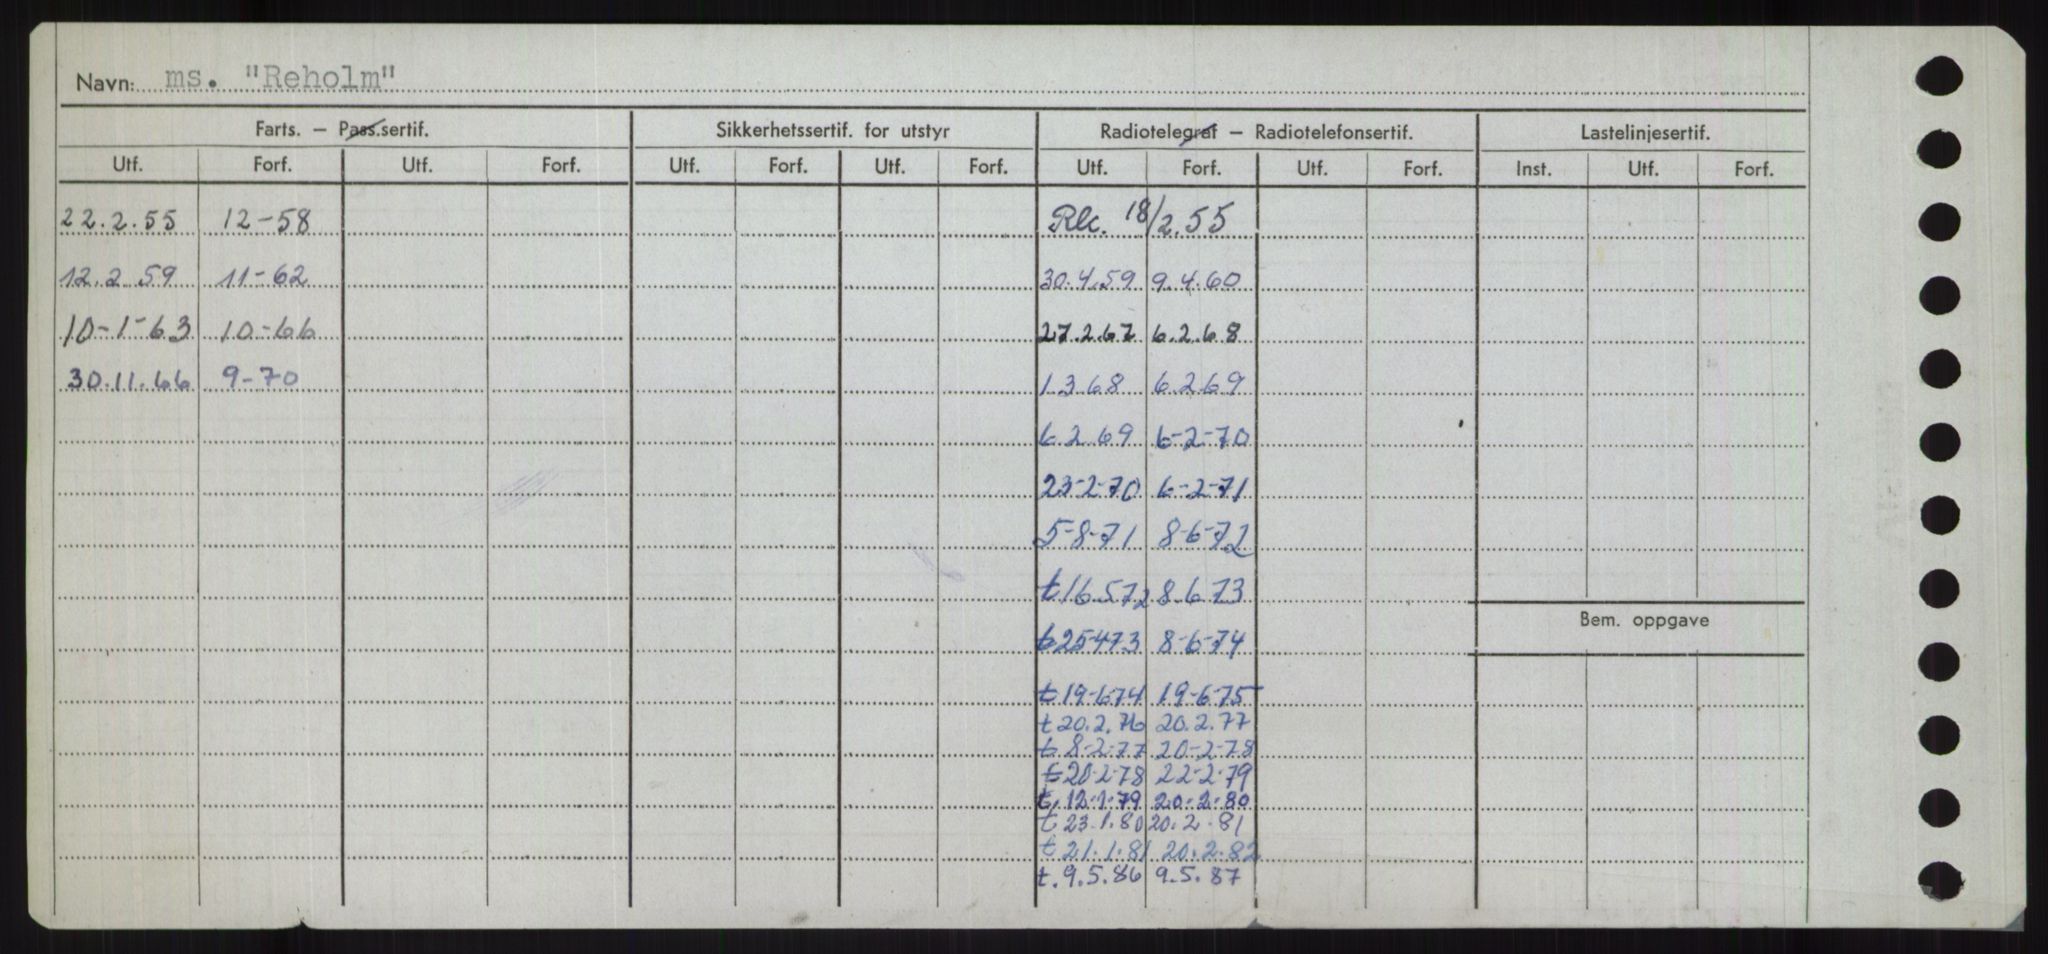 Navn: ms. "Reholm"
Farts. – Pass.sertif. Sikkerhetssertif. for utstyr Radiotelegraf – Radiotelefonsertif. Lastelinjesertif.
Utf. Forf. Utf. Forf. Utf. Forf. Utf. Forf. Utf. Forf. Utf. Forf. Inst. Utf. Forf.
22.2.55 12-58 Rk. 18/2.55
12.2.59 11-62 30.4.59 9.4.60
10-1-63 10-66 27.2.67 6.2.68
30.11.66 9-70 1.3.68 6.2.69
6.2.69 6-2-70
23-2-70 6-2-71
5-8-71 8-6-72
t16.572 8.6.73
Bem. oppgave
t25473 8-6-74
t19-674 19-6-75
t20.2.76 20.2.77
t8-2-77 20-2-78
t20-2-78 22-2-79
t.12.1.79 20.2.80
t23.1.80 20.2.81
t21.1.81 20.2.82
t.9.5.86 9.5.87